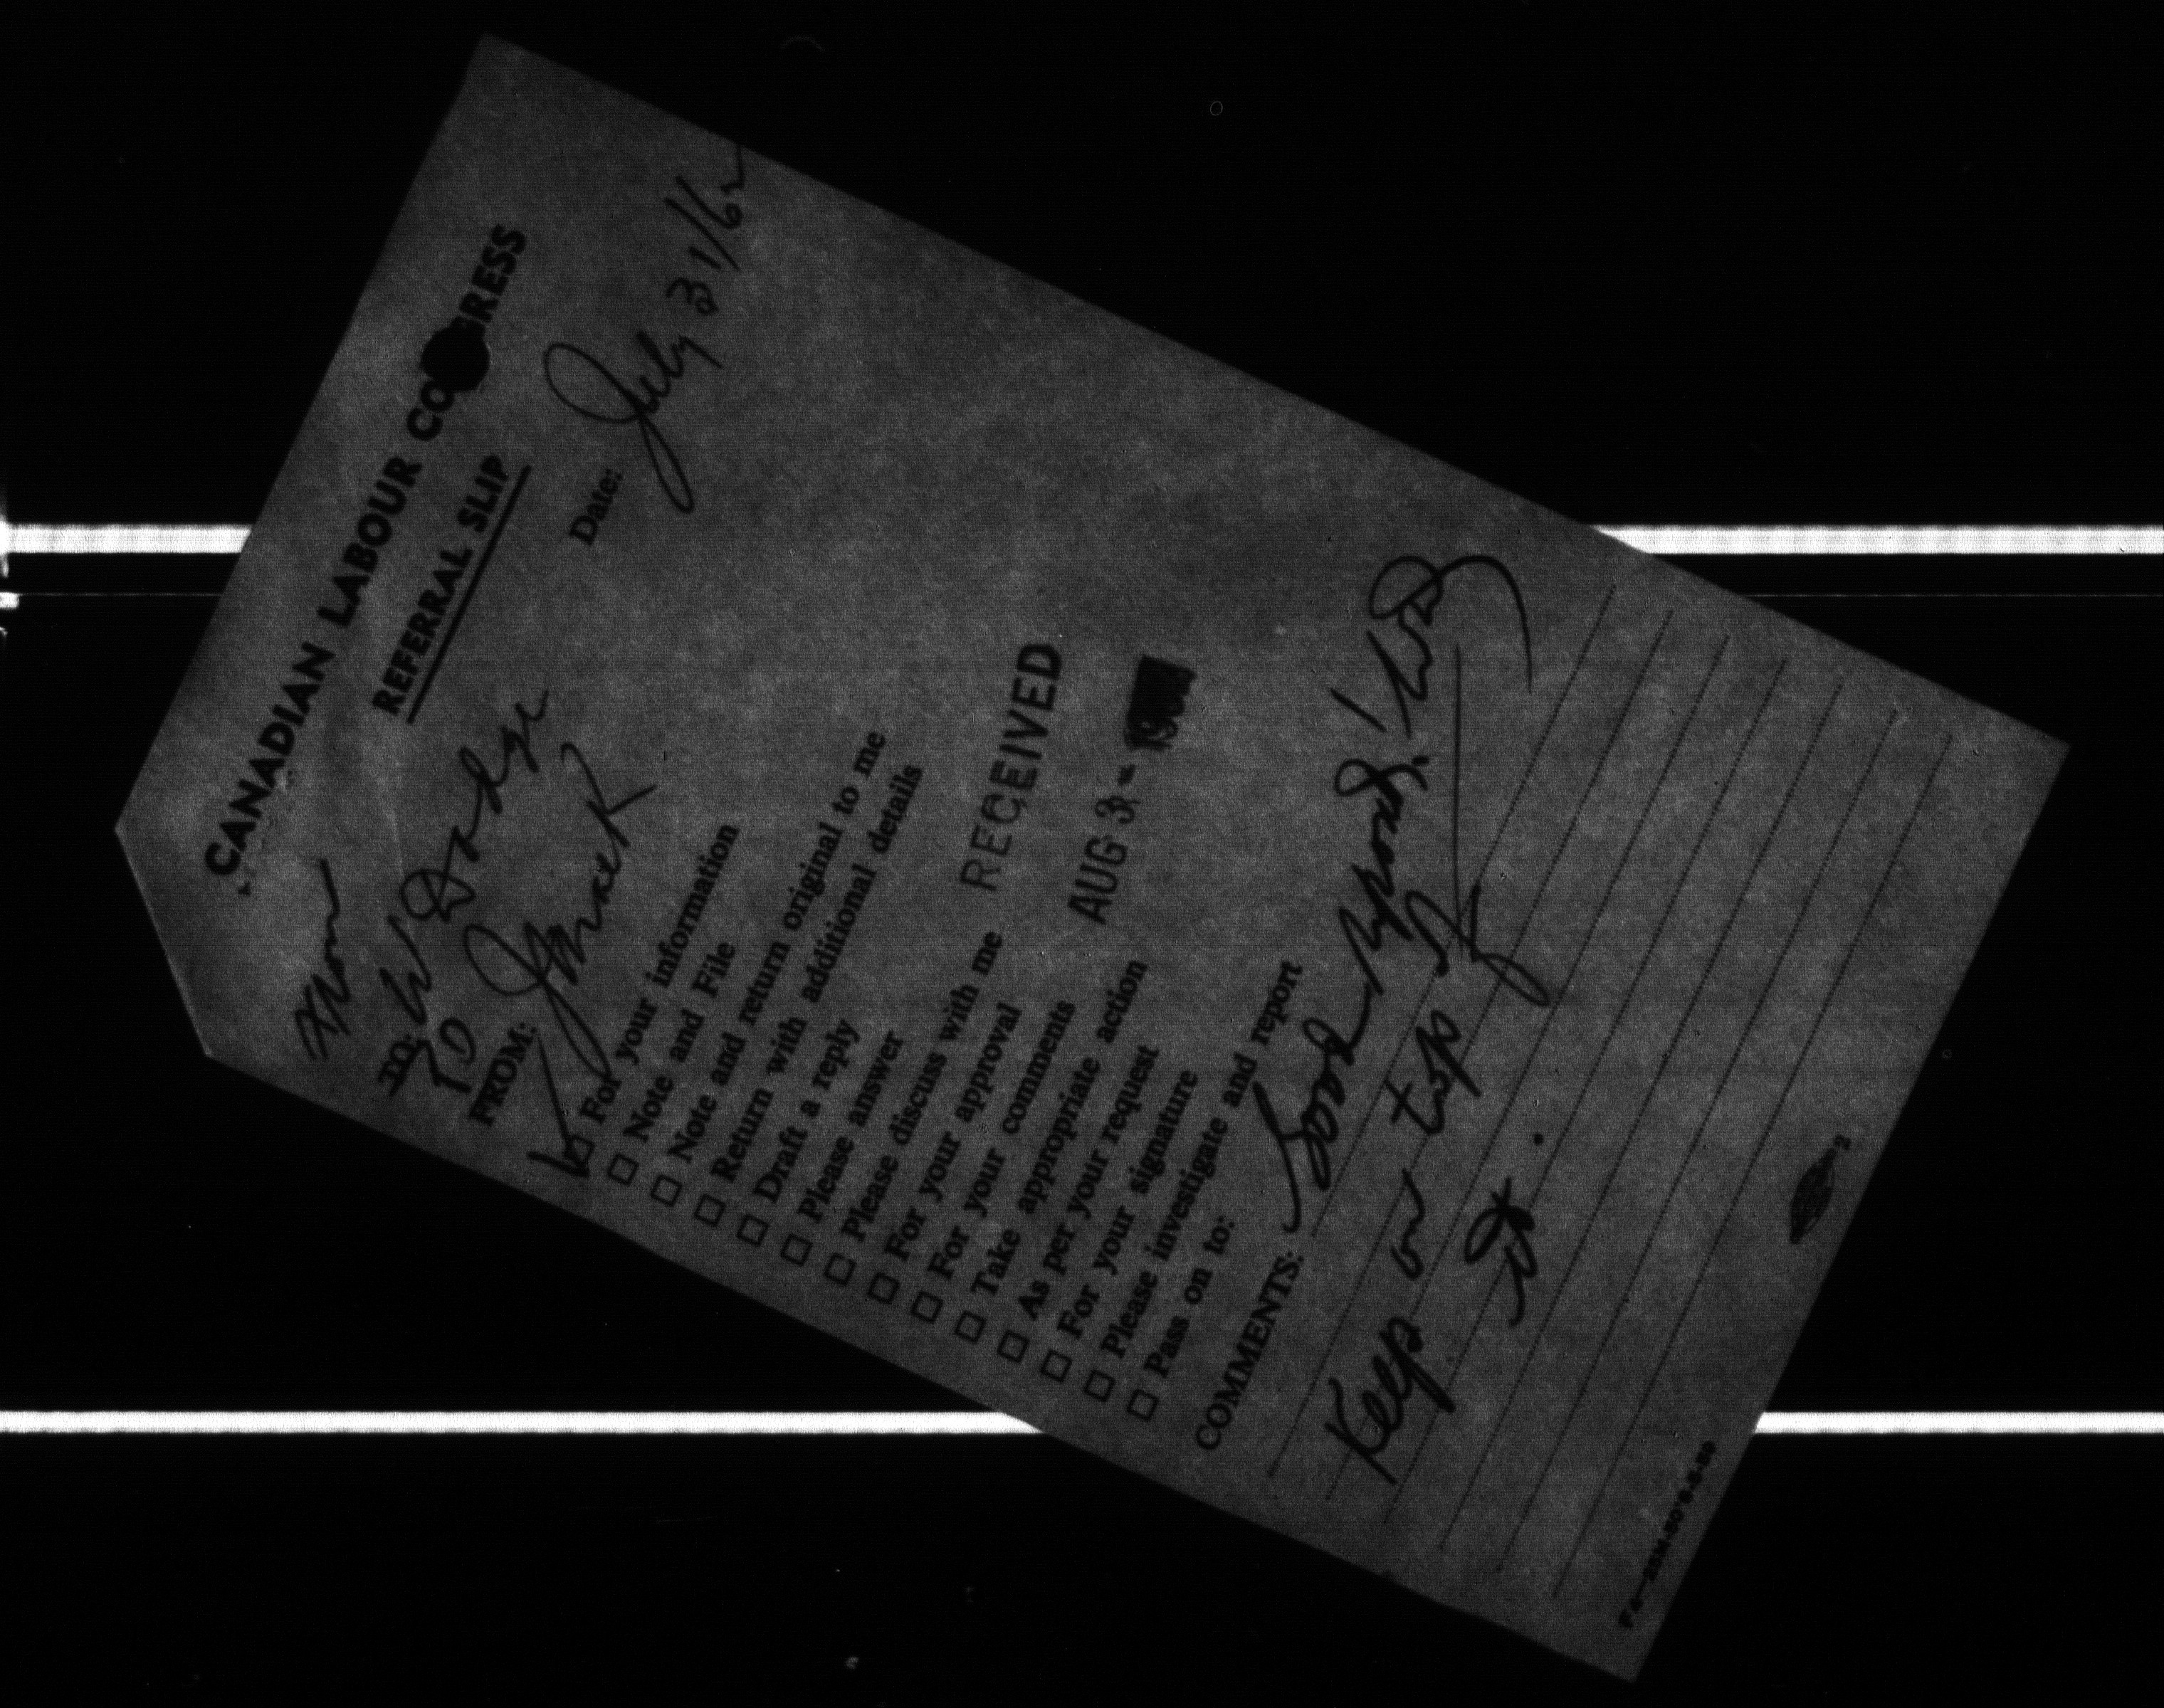 CANADIAN LABOUR CO RESS
REFERRAL SLIP
Date: July 31/62
From
TO: W Dodge
TO
FROM: J Mack
For your information
Note and File
Note and return original to me
Return with additional details
Draft a reply
Please answer
Please discuss with me
For your approval
For your comments
Take appropriate action
As per your request
For your signature
Please investigate and report
Pass on to:
RECEIVED
AUG 3 -
COMMENTS: Good report! WD
Keep on top of
it.
2